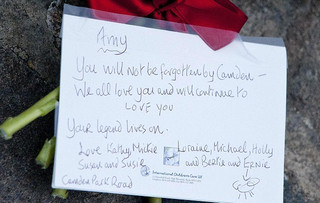 Amy
You will not be forgotten by Camden –
We all love you and will continue to
LOVE YOU
Your legend lives on.
Love Kathy, Mickie
Susan and Susie
Loraine, Michael, Holly
and Bertie and ERNIE
International Childrens Care UK
Camden Park Road